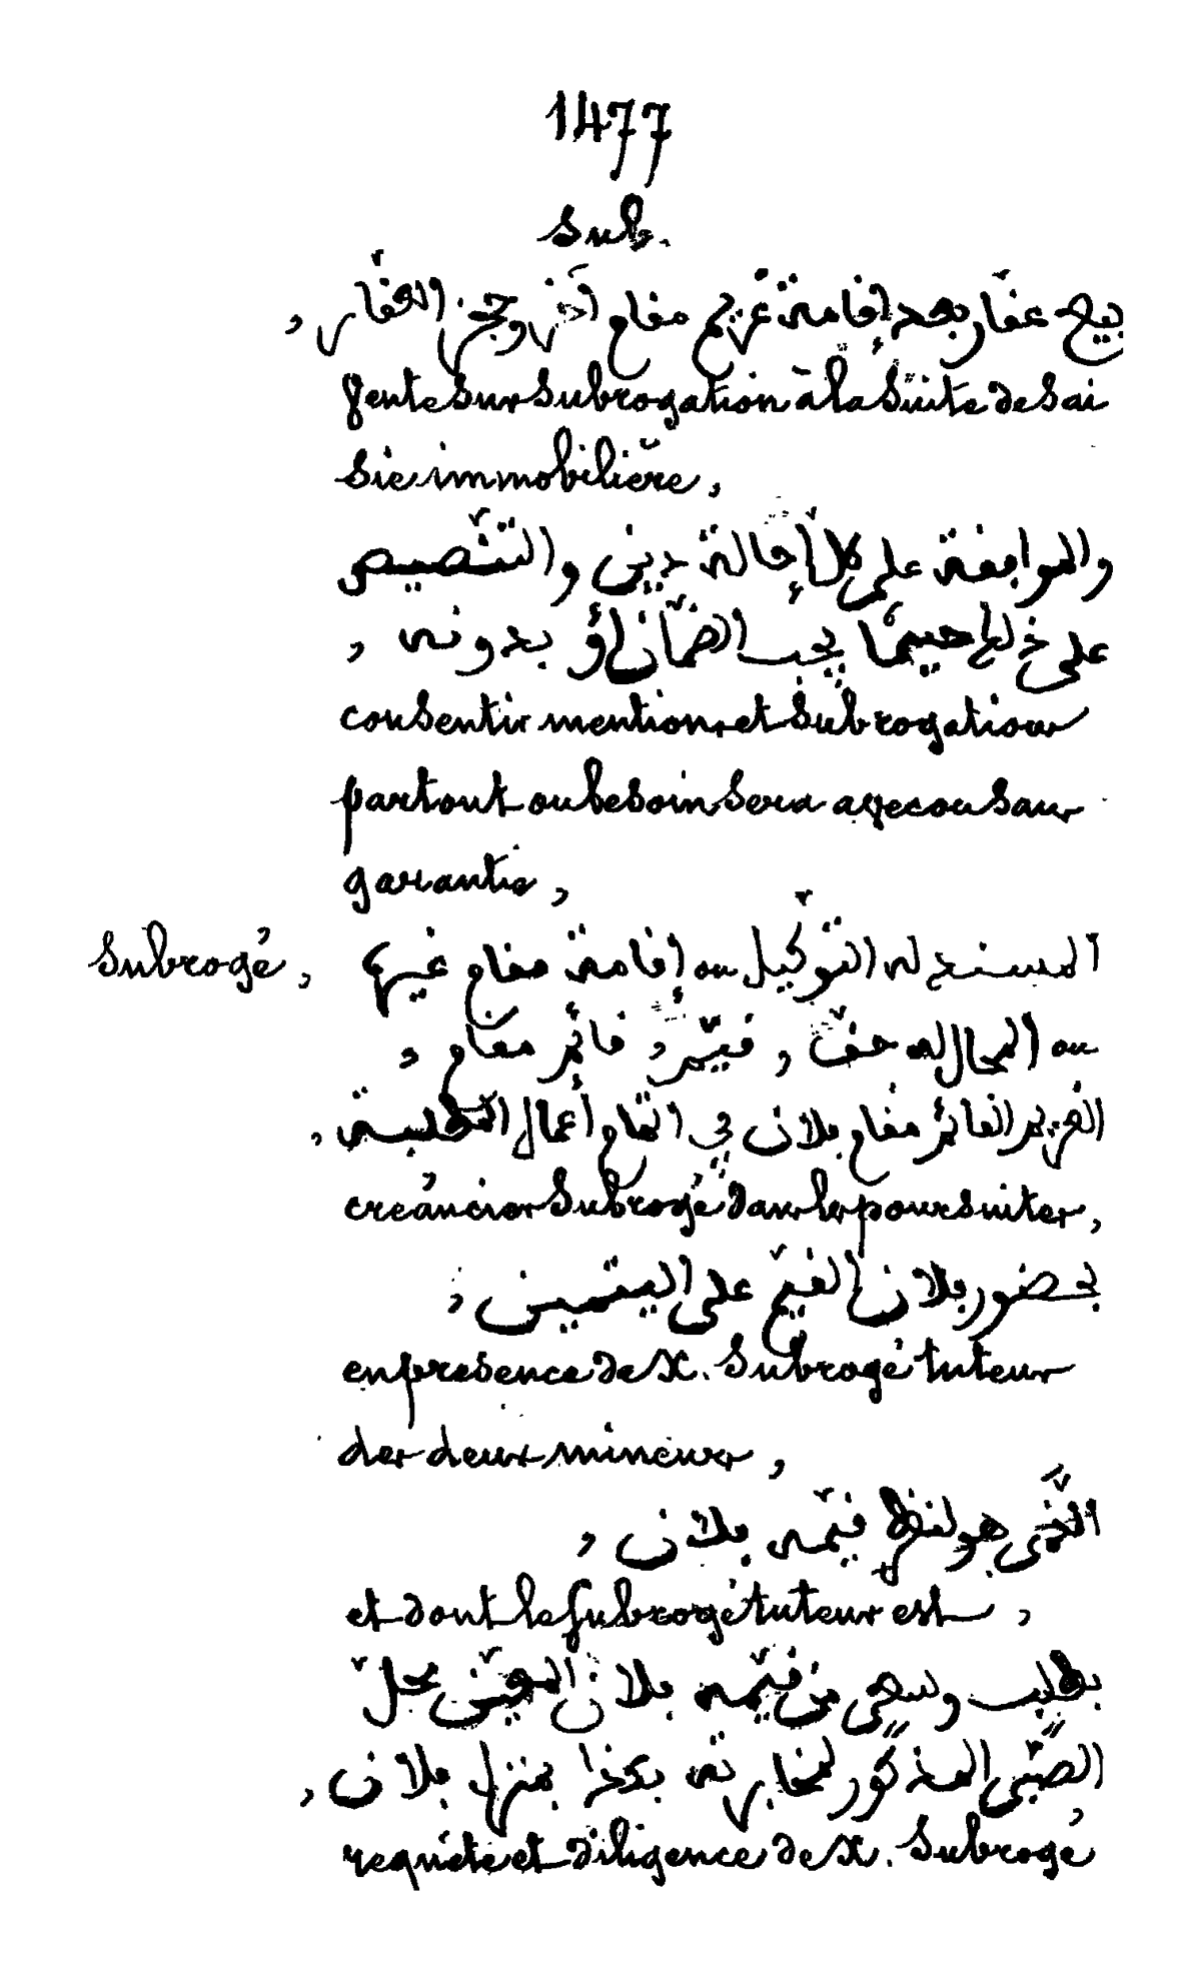 1477
Sub.
بيع عقّار بعد إقامة غريم مقام آخر وحجز العقّار,
Vente sur subrogation à la suite de sai
sie immobilière,
والموافقة على كلّ إحالة دين والتّنصيص
على ذلك حيثما يجب الضّمان أو بدونه,
consentir mention et subrogation
partout ou besoin sera avec ou sans
garantie,
Subrogé, المسند له التّوكيل ou إقامة مقام غيرها
ou المحال له حقّ, قيّم, قائم مقام,
الغريم القائم مقام فلان في اتمام أعمال الطلبة,
créancier subrogé dans les poursuites,
بحضور فلان القيّم على اليتيمين,
en présence de X. Subrogé tuteur
des deux mineurs,
الّذي هو لنظر قيّمه فلان,
et dont le subrogé tuteur est,
بطلب وسعي من قيّمه فلان المعيّن بمحلّ
الصّبي المذكور لمخابرته بكذا بمنزل فلان,
requête et diligence de X. Subrogé